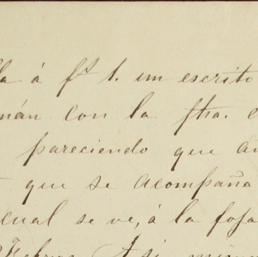 la á f.s 1. un escrito
mán con la fha.
pareciendo que
que se acompaña
cual se ve, á la foja